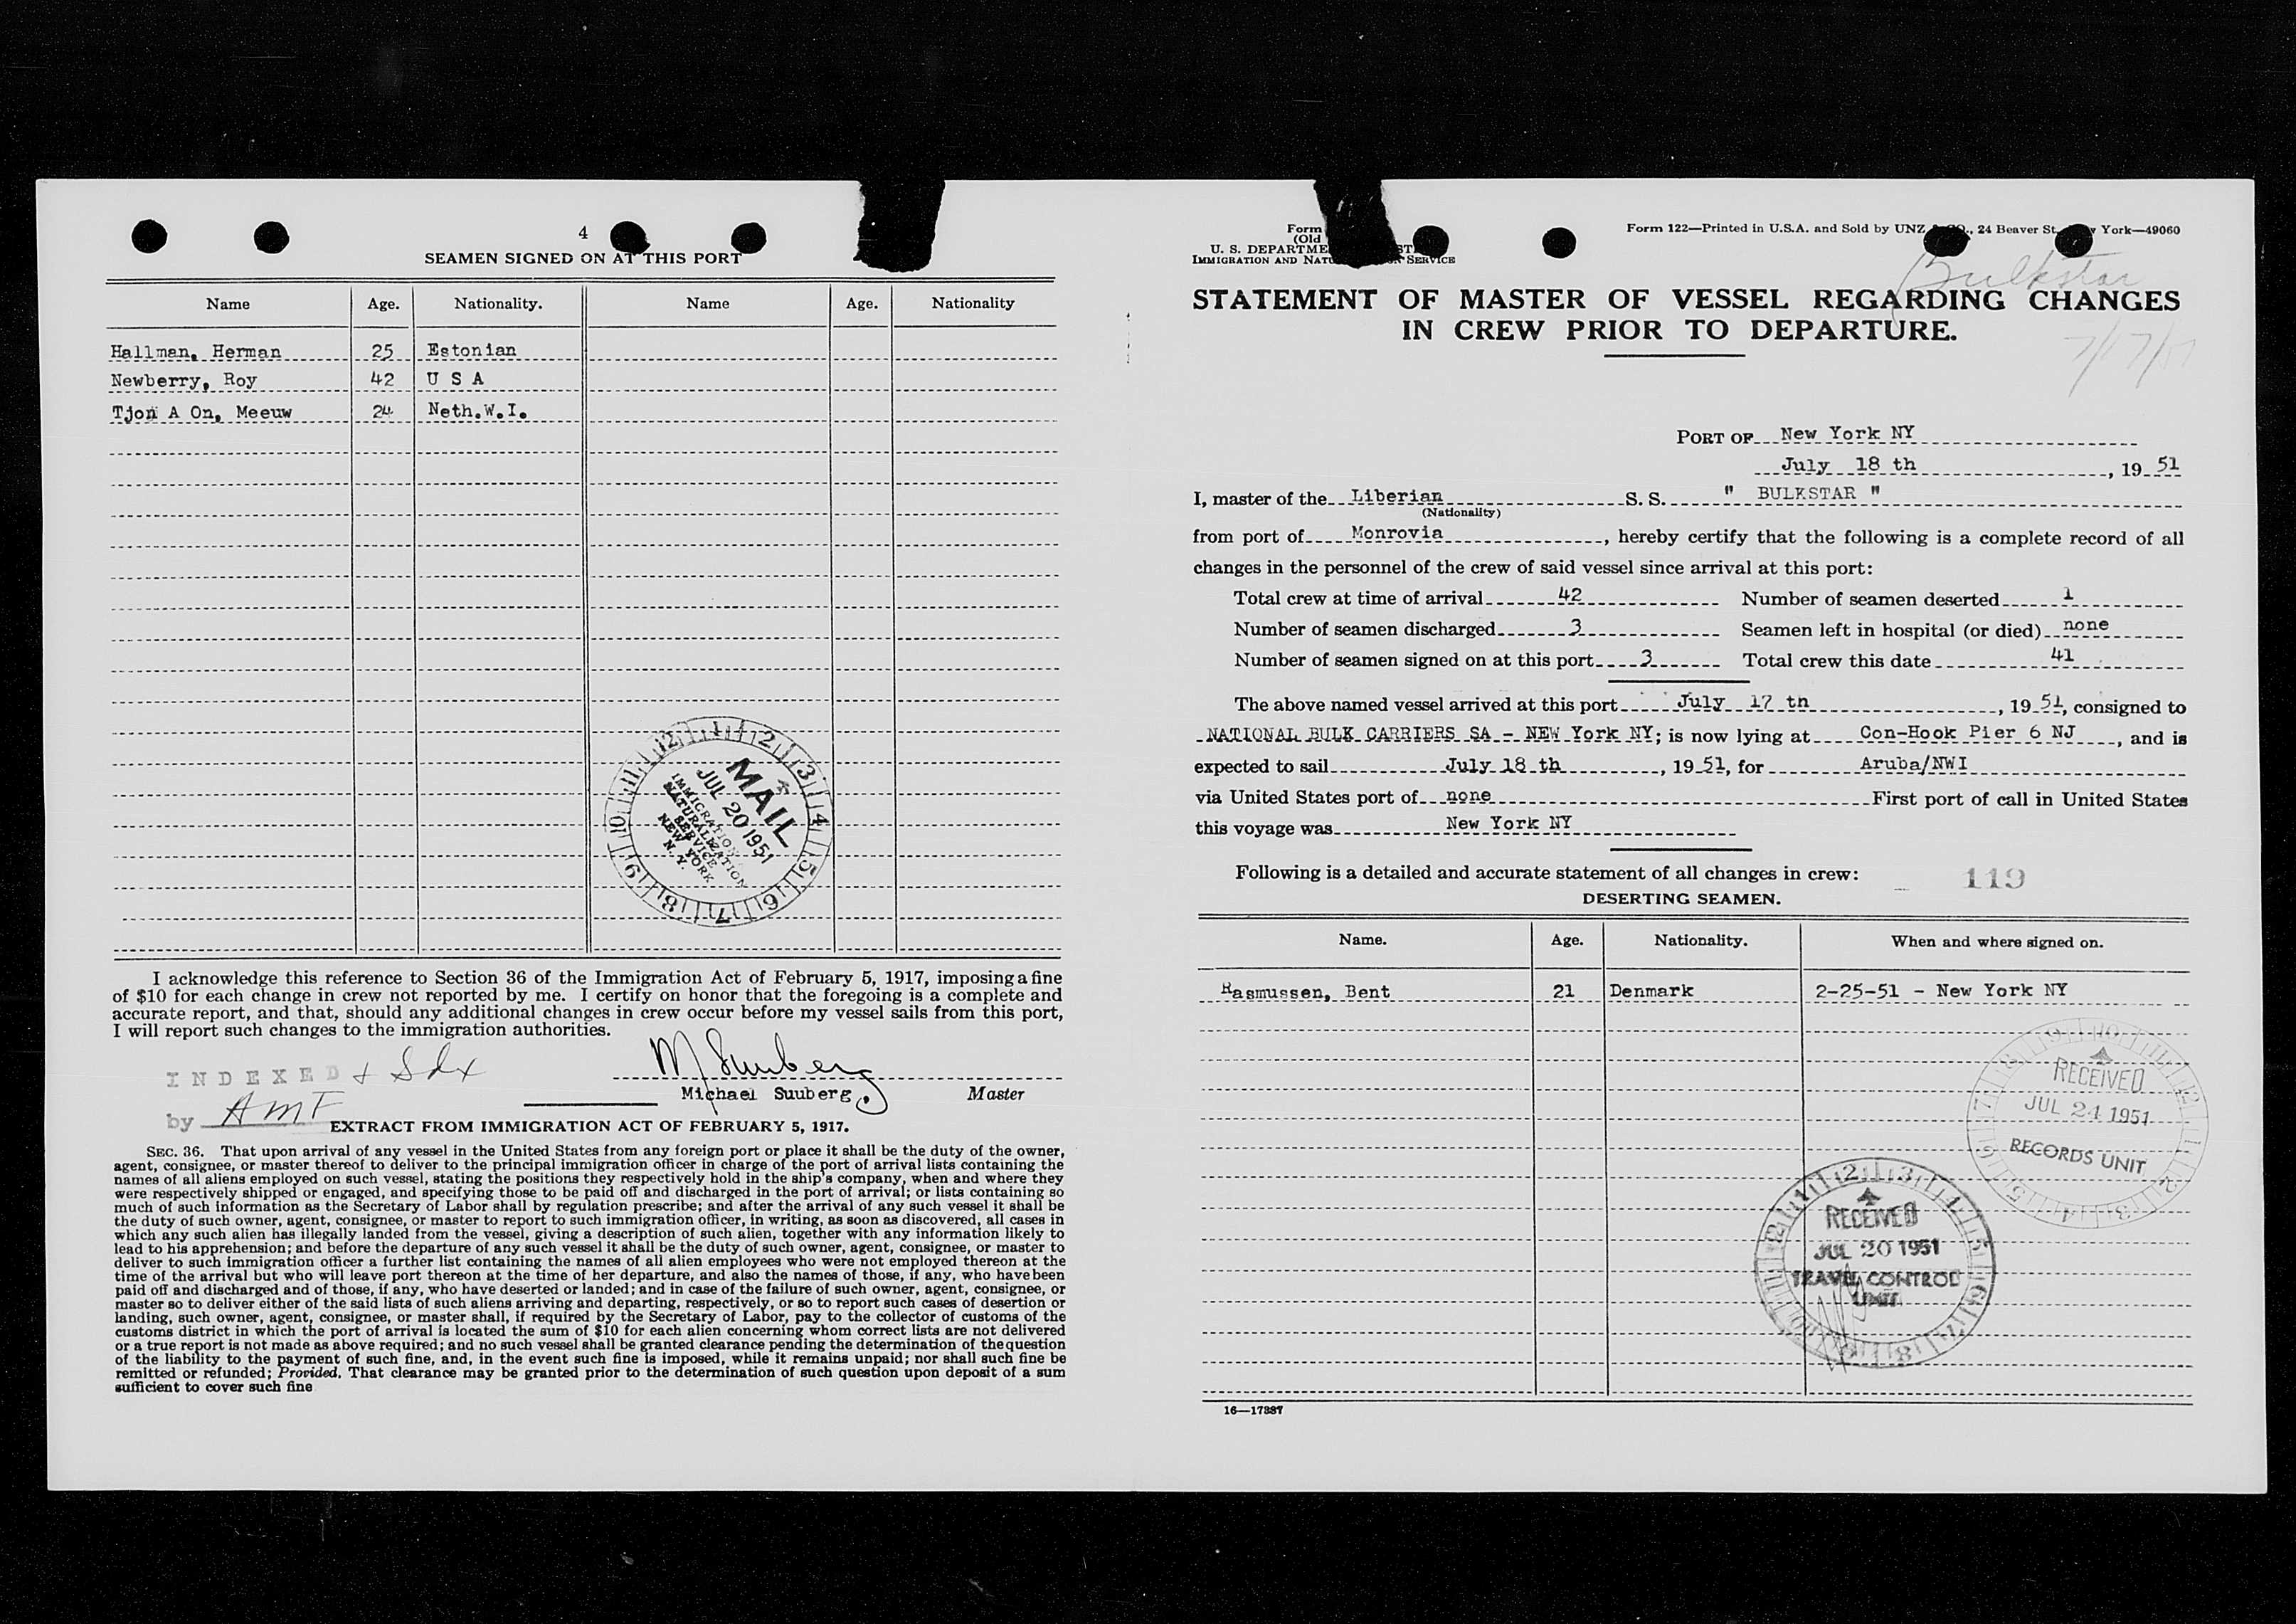 4
SEAMEN SIGNED ON AT THIS PORT
Name Age. Nationality. Name Age. Nationality
Hallman, Herman 25 Estonian
Newberry, Roy 42 U S A
Tjon A On, Meeuw 24 Neth.W.I.
12 1 2 3 4 5 6 7 8 9 10 11
MAIL
JUL 20 1951
IMMIGRATION
NATURALIZATION
SERVICE
NEW YORK
N. Y.
I acknowledge this reference to Section 36 of the Immigration Act of February 5, 1917, imposing a fine
of $10 for each change in crew not reported by me. I certify on honor that the foregoing is a complete and
accurate report, and that, should any additional changes in crew occur before my vessel sails from this port,
I will report such changes to the immigration authorities.
INDEXED
M Suuberg
Michael Suuberg, Master
by AMF
EXTRACT FROM IMMIGRATION ACT OF FEBRUARY 5, 1917.
SEC. 36. That upon arrival of any vessel in the United States from any foreign port or place it shall be the duty of the owner,
agent, consignee, or master thereof to deliver to the principal immigration officer in charge of the port of arrival lists containing the
names of all aliens employed on such vessel, stating the positions they respectively hold in the ship's company, when and where they
were respectively shipped or engaged, and specifying those to be paid off and discharged in the port of arrival; or lists containing so
much of such information as the Secretary of Labor shall by regulation prescribe; and after the arrival of any such vessel it shall be
the duty of such owner, agent, consignee, or master to report to such immigration officer, in writing, as soon as discovered, all cases in
which any such alien has illegally landed from the vessel, giving a description of such alien, together with any information likely to
lead to his apprehension; and before the departure of any such vessel it shall be the duty of such owner, agent, consignee, or master to
deliver to such immigration officer a further list containing the names of all alien employees who were not employed thereon at the
time of the arrival but who will leave port thereon at the time of her departure, and also the names of those, if any, who have been
paid off and discharged and of those, if any, who have deserted or landed; and in case of the failure of such owner, agent, consignee, or
master so to deliver either of the said lists of such aliens arriving and departing, respectively, or so to report such cases of desertion or
landing, such owner, agent, consignee, or master shall, if required by the Secretary of Labor, pay to the collector of customs of the
customs district in which the port of arrival is located the sum of $10 for each alien concerning whom correct lists are not delivered
or a true report is not made as above required; and no such vessel shall be granted clearance pending the determination of the question
of the liability to the payment of such fine, and, in the event such fine is imposed, while it remains unpaid; nor shall such fine be
remitted or refunded; Provided, That clearance may be granted prior to the determination of such question upon deposit of a sum
sufficient to cover such fine
Form
(Old
U. S. DEPARTME
IMMIGRATION AND NATU SERVICE
Form 122—Printed in U.S.A. and Sold by UNZ & CO., 24 Beaver St. York—49060
Bulkstar
STATEMENT OF MASTER OF VESSEL REGARDING CHANGES
IN CREW PRIOR TO DEPARTURE.
7/17/51
PORT OF New York NY
July 18 th, 19 51
I, master of the Liberian S. S. " BULKSTAR "
(Nationality)
from port of Monrovia, hereby certify that the following is a complete record of all
changes in the personnel of the crew of said vessel since arrival at this port:
Total crew at time of arrival 42 Number of seamen deserted 1
Number of seamen discharged 3 Seamen left in hospital (or died) none
Number of seamen signed on at this port 3 Total crew this date 41
The above named vessel arrived at this port July 17 th, 19 51, consigned to
NATIONAL BULK CARRIERS SA - NEW York NY; is now lying at Con-Hook Pier 6 NJ, and is
expected to sail July 18 th, 19 51, for Aruba/NWI
via United States port of none First port of call in United States
this voyage was New York NY
Following is a detailed and accurate statement of all changes in crew:
119
DESERTING SEAMEN.
Name. Age. Nationality. When and where signed on.
Rasmussen, Bent 21 Denmark 2-25-51 - New York NY
RECEIVED
JUL 24 1951
RECORDS UNIT
RECEIVED
JUL 20 1951
TRAVEL CONTROL
UNIT
16—17387